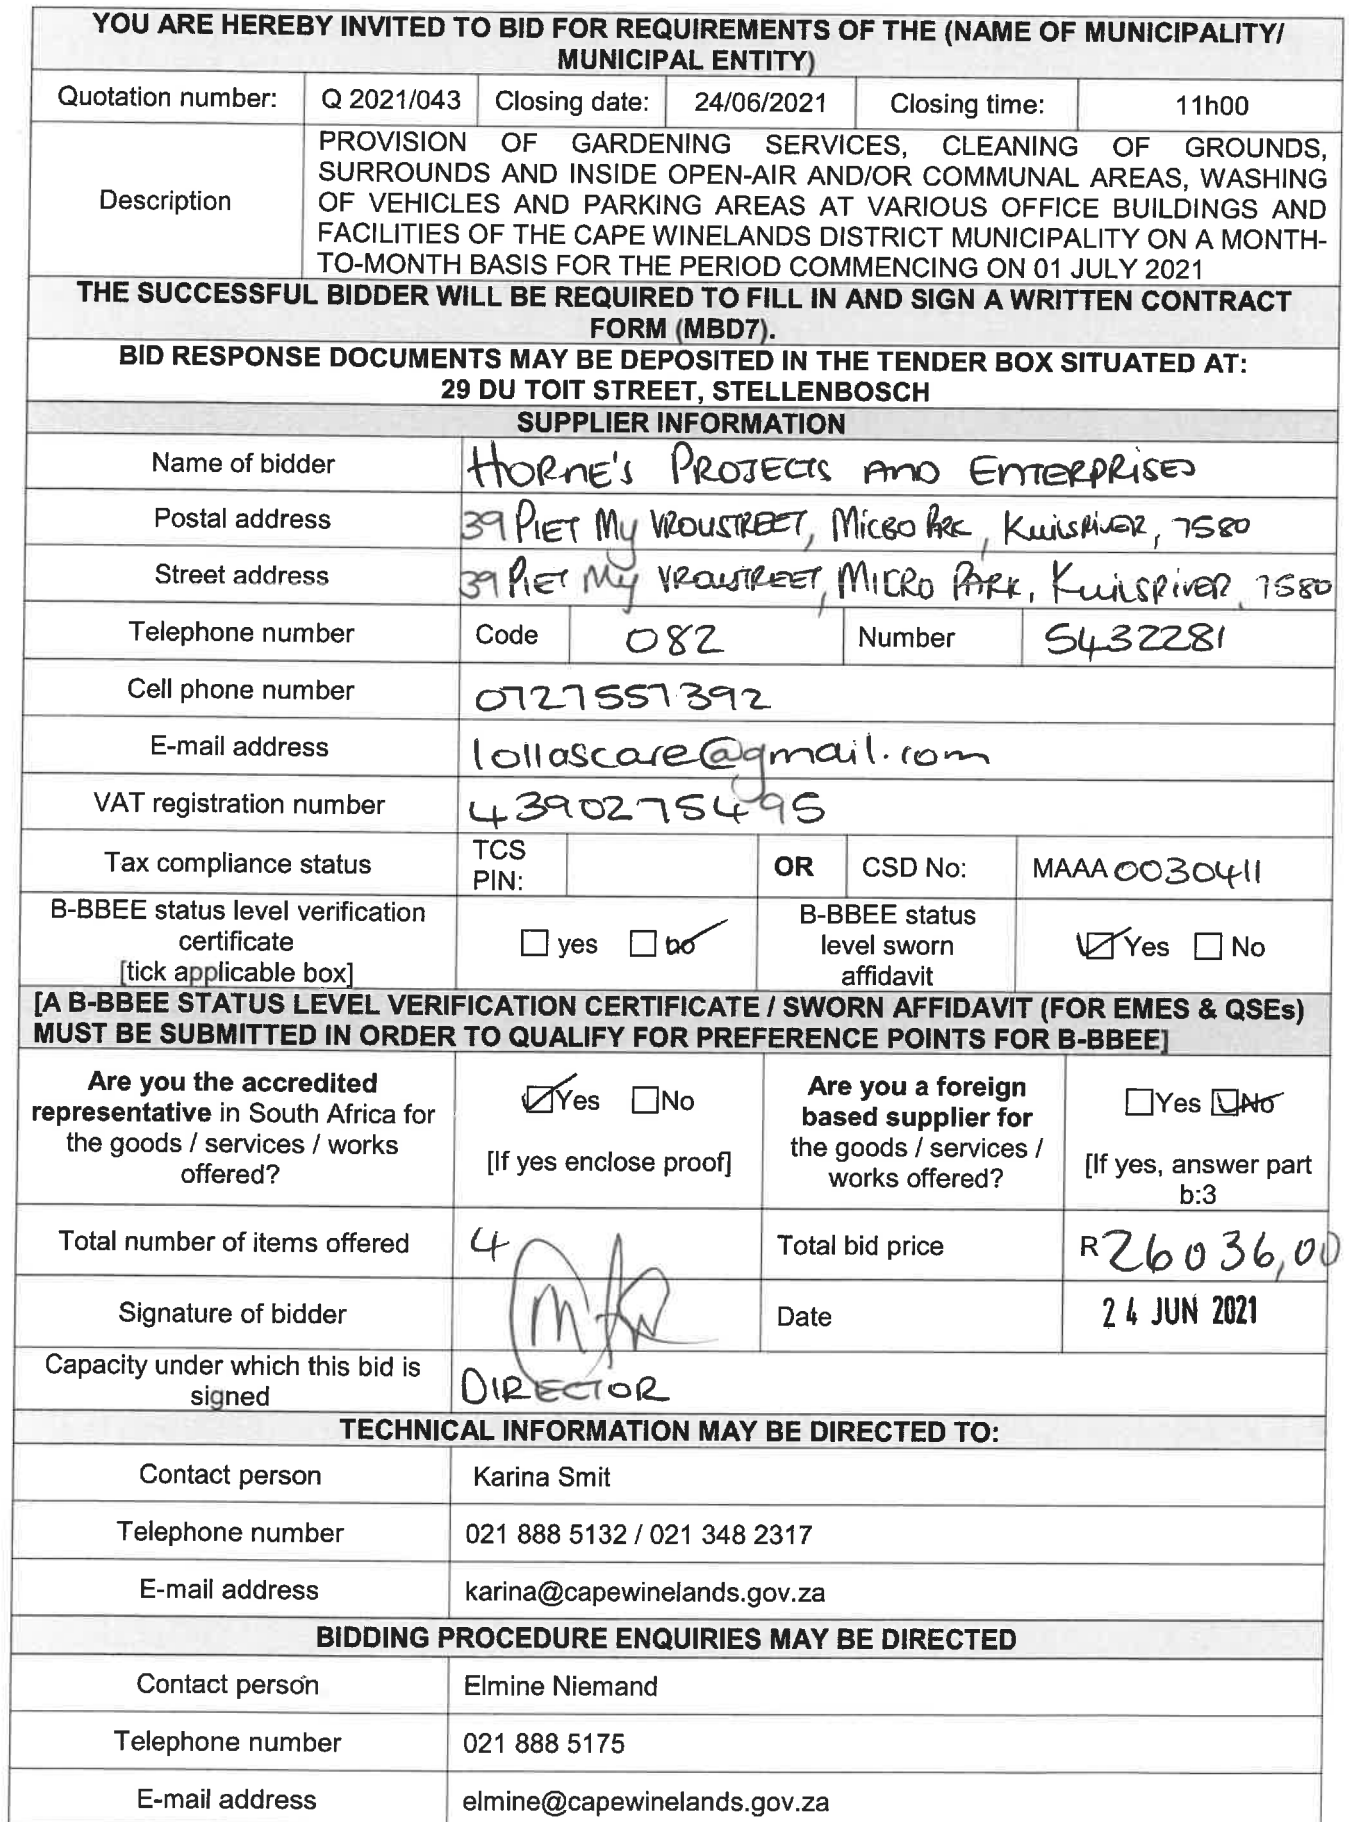 YOU ARE HEREBY INVITED TO BID FOR REQUIREMENTS OF THE (NAME OF MUNICIPALITY/
MUNICIPAL ENTITY)
Quotation number: Q 2021/043 Closing date: 24/06/2021 Closing time: 11h00
Description
PROVISION OF GARDENING SERVICES, CLEANING OF GROUNDS,
SURROUNDS AND INSIDE OPEN-AIR AND/OR COMMUNAL AREAS, WASHING
OF VEHICLES AND PARKING AREAS AT VARIOUS OFFICE BUILDINGS AND
FACILITIES OF THE CAPE WINELANDS DISTRICT MUNICIPALITY ON A MONTH-
TO-MONTH BASIS FOR THE PERIOD COMMENCING ON 01 JULY 2021
THE SUCCESSFUL BIDDER WILL BE REQUIRED TO FILL IN AND SIGN A WRITTEN CONTRACT
FORM (MBD7).
BID RESPONSE DOCUMENTS MAY BE DEPOSITED IN THE TENDER BOX SITUATED AT:
29 DU TOIT STREET, STELLENBOSCH
SUPPLIER INFORMATION
Name of bidder HORNE'S PROJECTS AND ENTERPRISES
Postal address 39 PIET MY VROUSTREET, MICRO PARK, KUILSRIVER, 7580
Street address 39 PIET MY VROUSTREET, MICRO PARK, KUILSRIVER, 7580
Telephone number Code 082 Number 5432281
Cell phone number 0727557392
E-mail address lollascare@gmail.com
VAT registration number 4390275495
Tax compliance status
TCS
PIN:
OR CSD No: MAAA 0030411
B-BBEE status level verification
certificate
[tick applicable box]
yes no
B-BBEE status
level sworn
affidavit
Yes No
[A B-BBEE STATUS LEVEL VERIFICATION CERTIFICATE / SWORN AFFIDAVIT (FOR EMES & QSEs)
MUST BE SUBMITTED IN ORDER TO QUALIFY FOR PREFERENCE POINTS FOR B-BBEE]
Are you the accredited
representative in South Africa for
the goods / services / works
offered?
Yes No
[If yes enclose proof]
Are you a foreign
based supplier for
the goods / services /
works offered?
Yes No
[If yes, answer part
b:3
Total number of items offered 4 Total bid price R 26036,00
Signature of bidder Date 24 JUN 2021
Capacity under which this bid is
signed
DIRECTOR
TECHNICAL INFORMATION MAY BE DIRECTED TO:
Contact person Karina Smit
Telephone number 021 888 5132 / 021 348 2317
E-mail address karina@capewinelands.gov.za
BIDDING PROCEDURE ENQUIRIES MAY BE DIRECTED
Contact person Elmine Niemand
Telephone number 021 888 5175
E-mail address elmine@capewinelands.gov.za